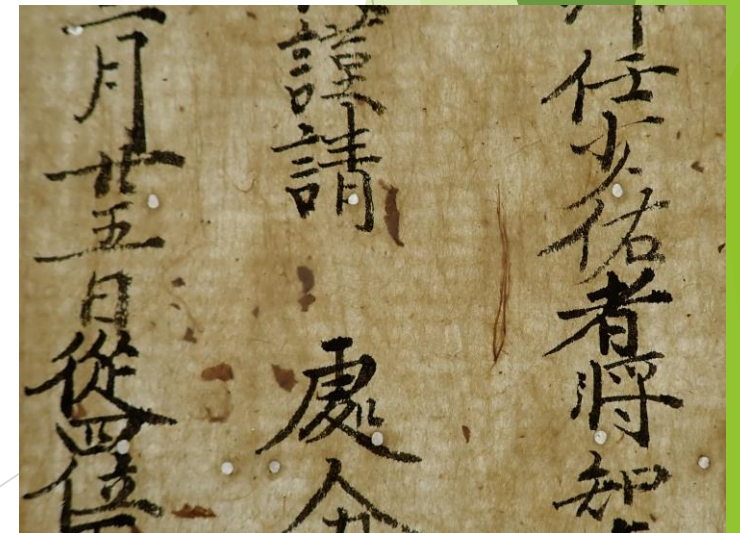 任少佑者將知
謹請 處分
月廿五日從四位